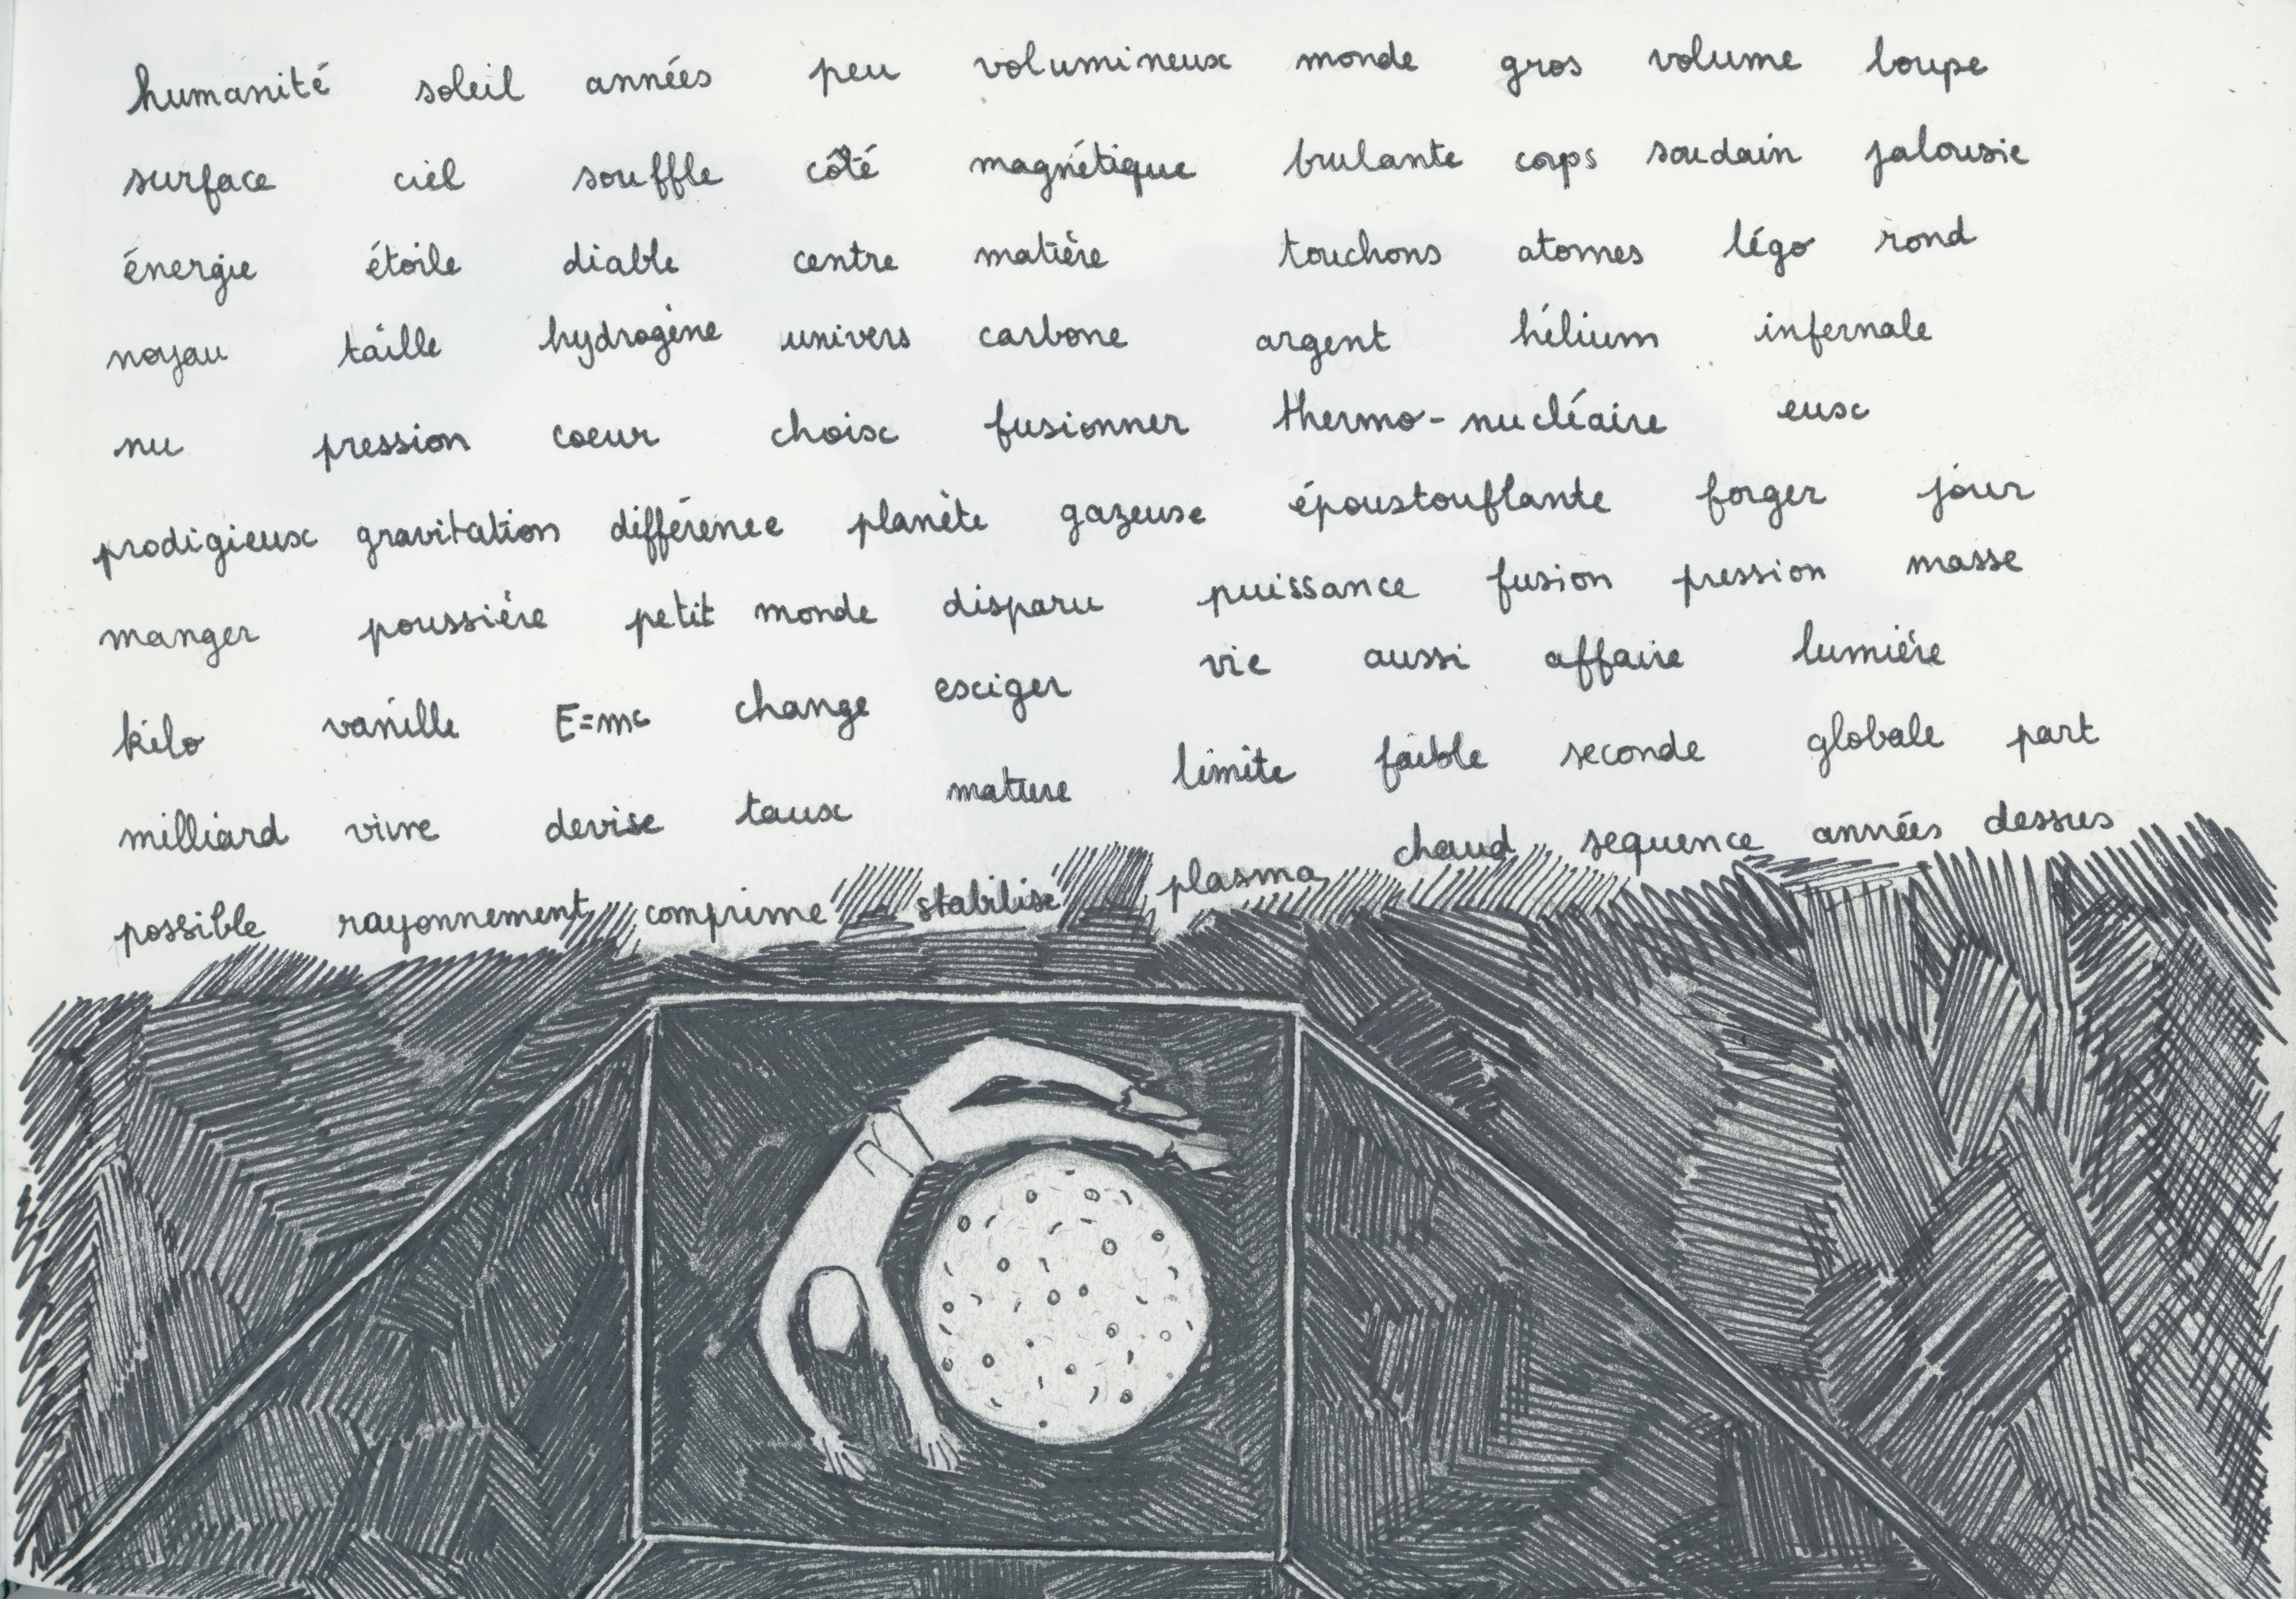 humanité soleil années peu volumineux monde gros volume loupe
surface ciel souffle côté magnétique brulante corps soudain jalousie
énergie étoile diable centre matière touchons atomes légo rond
noyau taille hydrogène univers carbone argent hélium infernale
nu pression coeur choix fusionner thermo-nucléaire eux
prodigieux gravitation différence planète gazeuse époustouflante forger jour
manger poussière petit monde disparu puissance fusion pression masse
kilo vanille E=mc change exiger vie aussi affaire lumière
milliard vivre devise taux mature limite faible seconde globale part
possible rayonnement comprime stabilise plasma chaud sequence années dessus